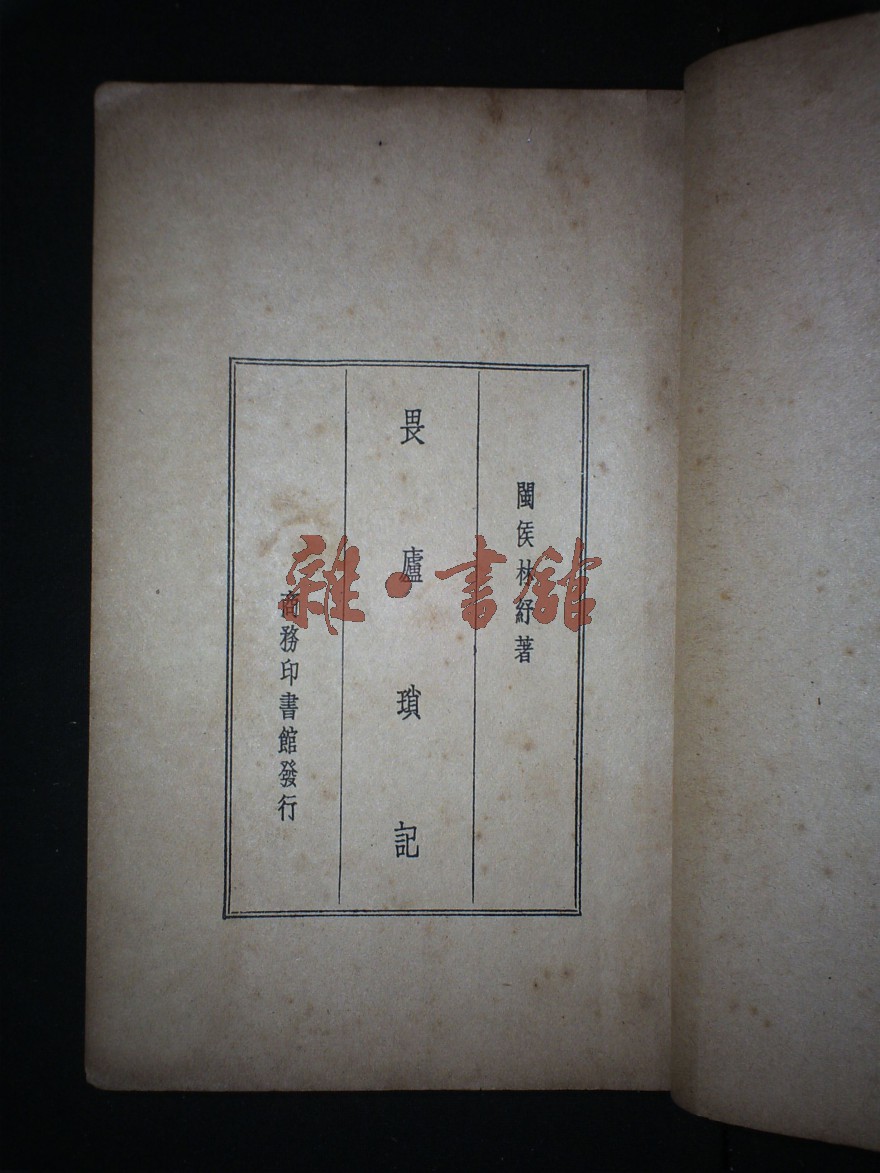 閩侯林紓著
畏廬瑣記
商務印書館發行
雜·書館